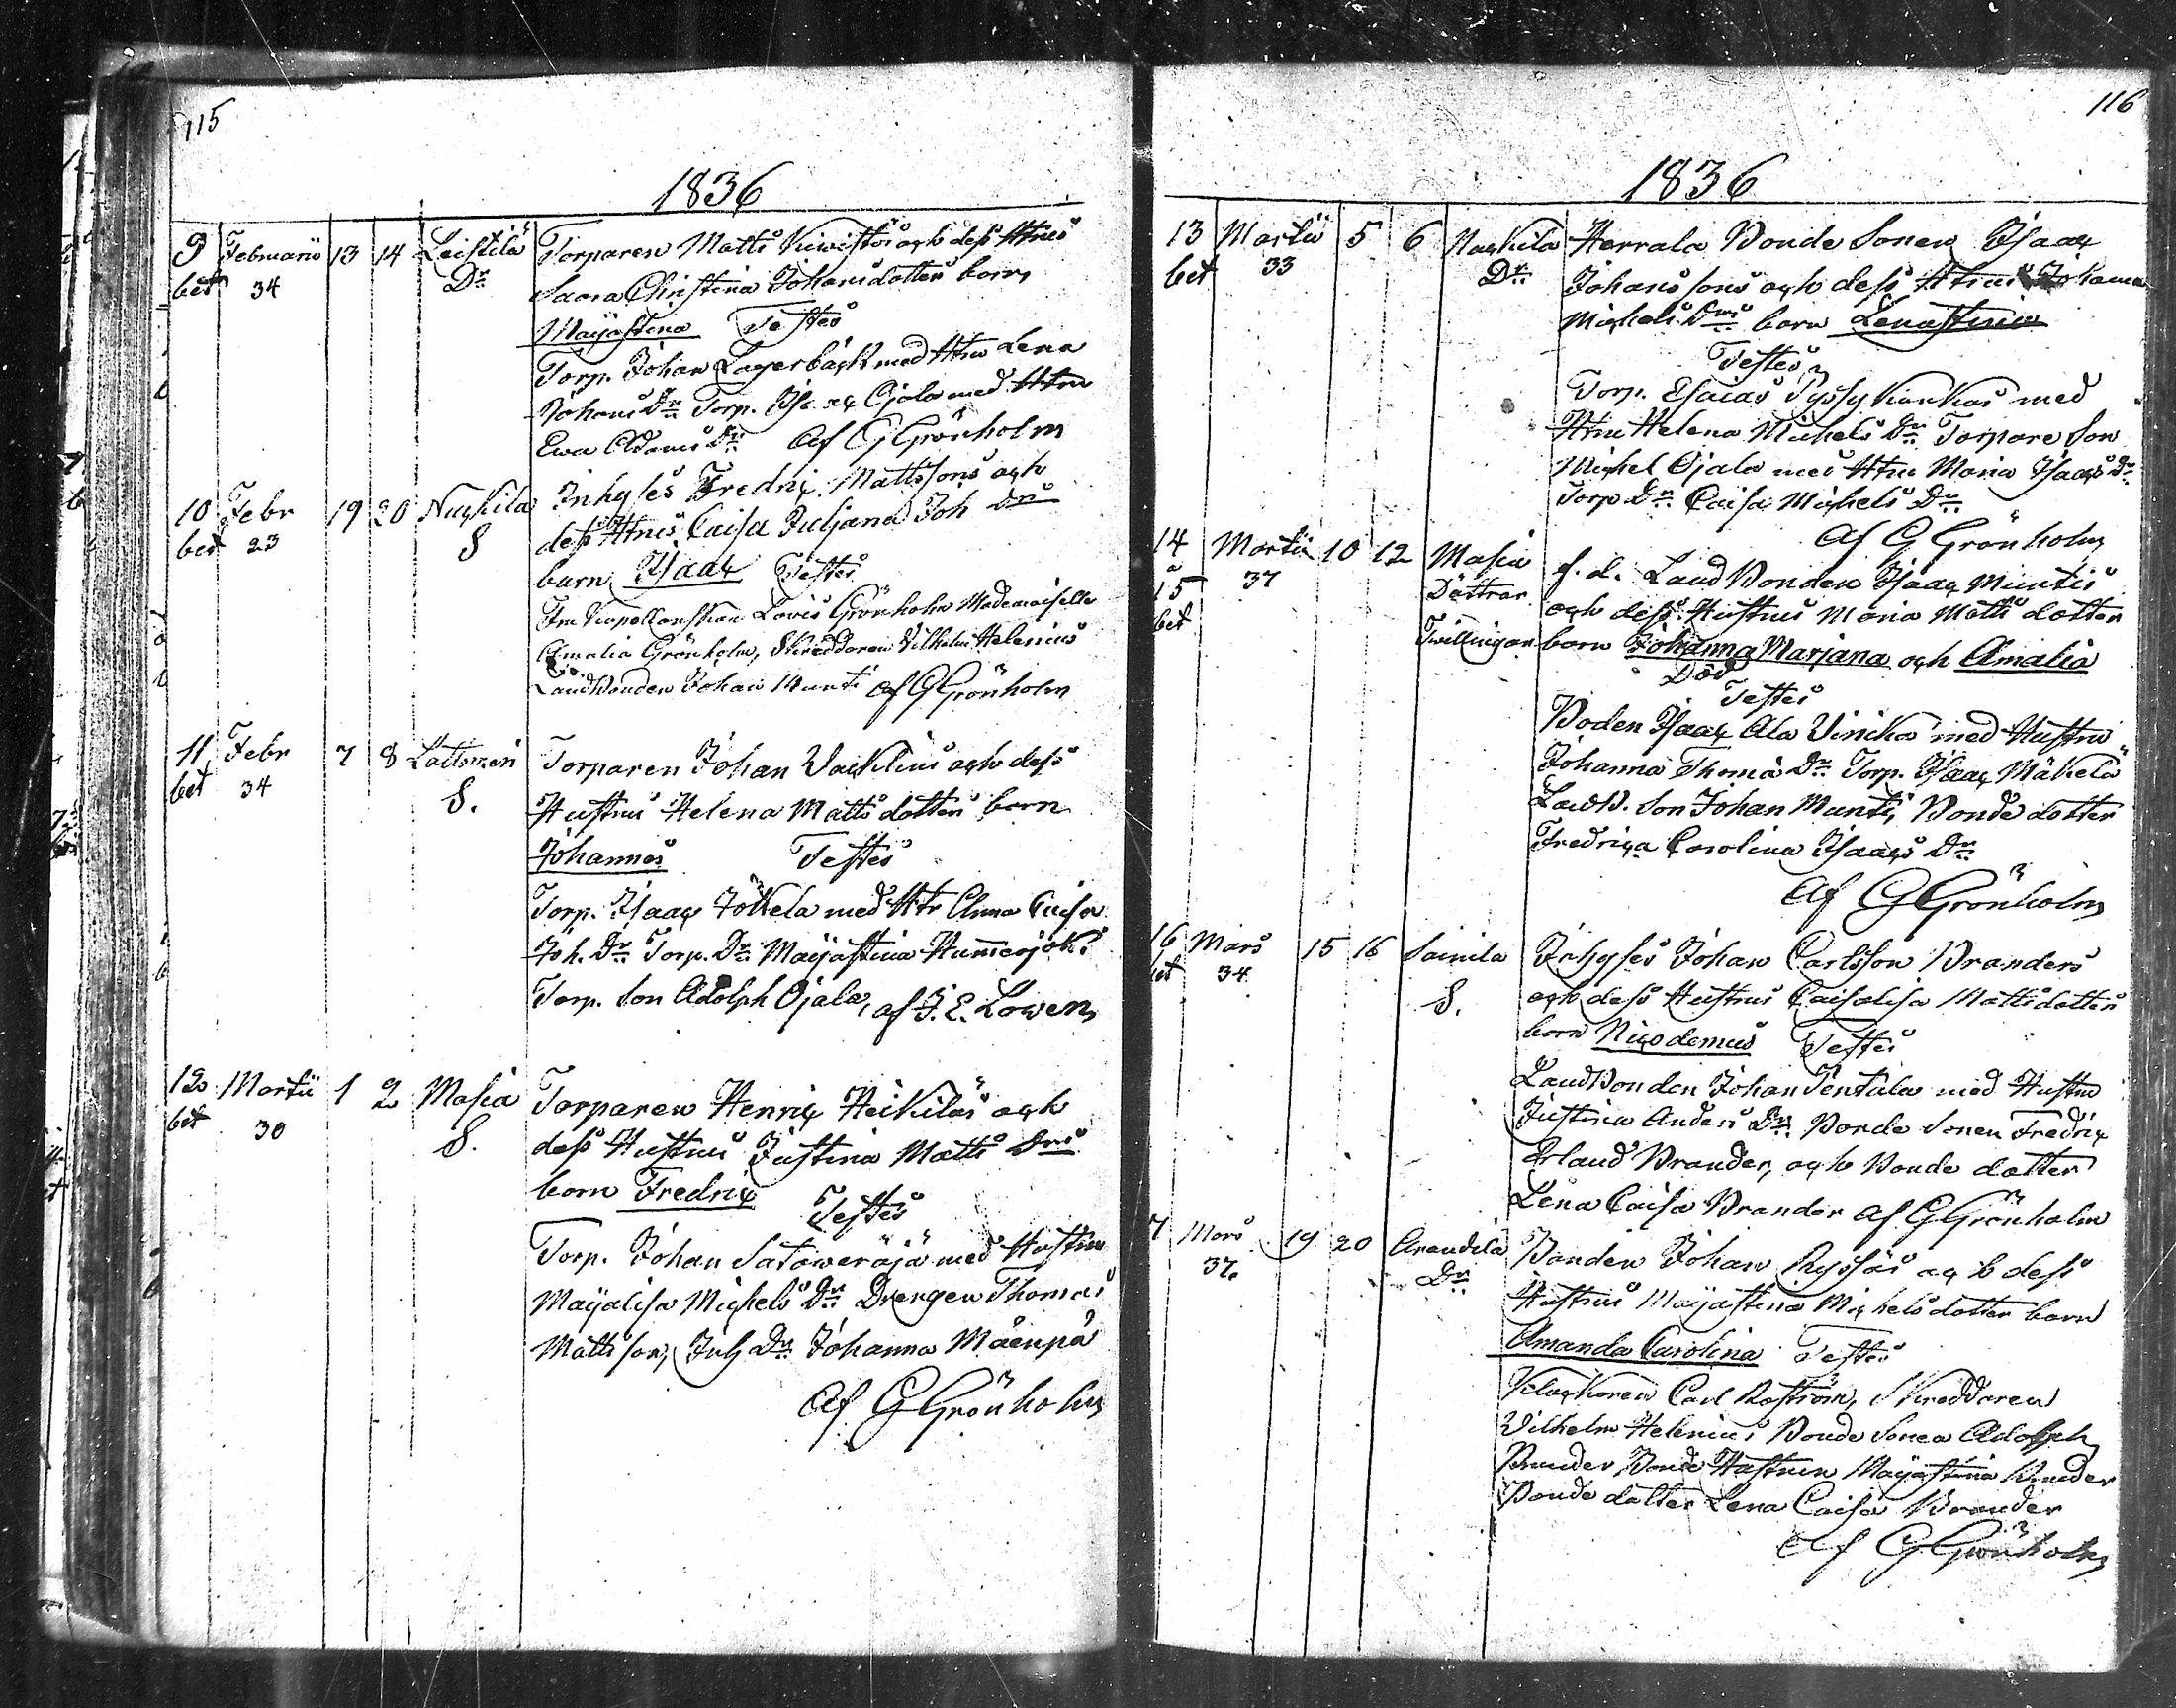 115
1836
9 Februarii 13 14 Leistilä Torparen Matts Kiwistös och dess Htrus
bet 34 Dr Saara Christina Johansdotters barn
Maijastina Testes
Torp. Johan Lagerbäck med Htru Lena
Johans Dr Torp. Isaac Ojala med Htru
Ewa Adams Dr Af G Grönholm
10 Febr 19 20 Nuckila Inhyses Fredric Mattssons och
bet 23 S dess Htrus Caisa Juljana Joh Drs
barn Isaac Testes
Fru Kapellanskan Lovis Grönholm Mademoiselle
Amalia Grönholm, Skreddaren Vilhelm Helenius
Landbonden Johan Munti af G Grönholm
11 Febr 7 8 Lattomeri Torparen Johan Wackilius och dess
bet 34 S. Hustrus Helena Matts dotters barn
Johannes Testes
Torp. Isaac Jökela med Htr Anna Caisa
Joh. Dr Torp. Dr Maijastina Hannojoki
Torp. Son Adolph Ojala, af J. E. Lowen
12 Martii 1 2 Masia Torparen Henric Heikiläs och
bet 30 S. dess Hustrus Justina Matts Drs
barn Fredric Testes
Torp. Johan Satoweräjä med Hustru
Maijalisa Michels Dr Drengen Thomas
Mattsson, Inh Dr Johanna Mäenpä
Af G Grönholm
116
1836
13 Martii 5 6 Nackila Herrala Bonde Sonen Isaac
bet 33 Dr Johanssons och dess Htrus Johanna
Michels Drs barn Lenastina
Testes
Torp. Esaias Pyssykankas med
Htru Helena Michels Dr Torpare Son
Michel Ojala med Htru Maria Isaacs Dr
Torp Dr Caisa Michels Dr
Af G Grönholm
14 Martii 10 12 Masia f. d. Land Bonden Isaac Muntis
a 37 Döttrar och dess Hustrus Maria Matts dotter
15 bet Twillingar barn Johanna Marjana och Amalia
Död
Testes
Boden Isaac Ala Vinika med Hustru
Johanna Thoma Dr Torp. Isaac Mäkelä
Landb. Son Johan Munti, Bonde dotter
Fredrica Carolina Isaacs Dr
Af G Grönholm
16 Mars 15 16 Soinila Inhyses Johan Carlsson Branders
bet 34 S. och dess Hustrus Caisalisa Mattsdotters
barn Nicodemus Testes
Landbonden Johan Pentala med Hustru
Justina Anders Dr Bonde Sonen Fredric
Erland Brander, och Bonde dotter
Lena Caisa Brander Af G Grönholm
7 Mars 19 20 Arandila Bonden Johan Ryssäs och dess
37 Dr Hustrus Maijastina Michelsdotter barn
Amanda Carolina Testes
Klockaren Carl Roström, Skreddaren
Vilhelm Helenius Bonde Sonen Adolph
Brander Bonde Hustrun Maijastina Brander
Bonde dotter Lena Caisa Brander
Af G Grönholm